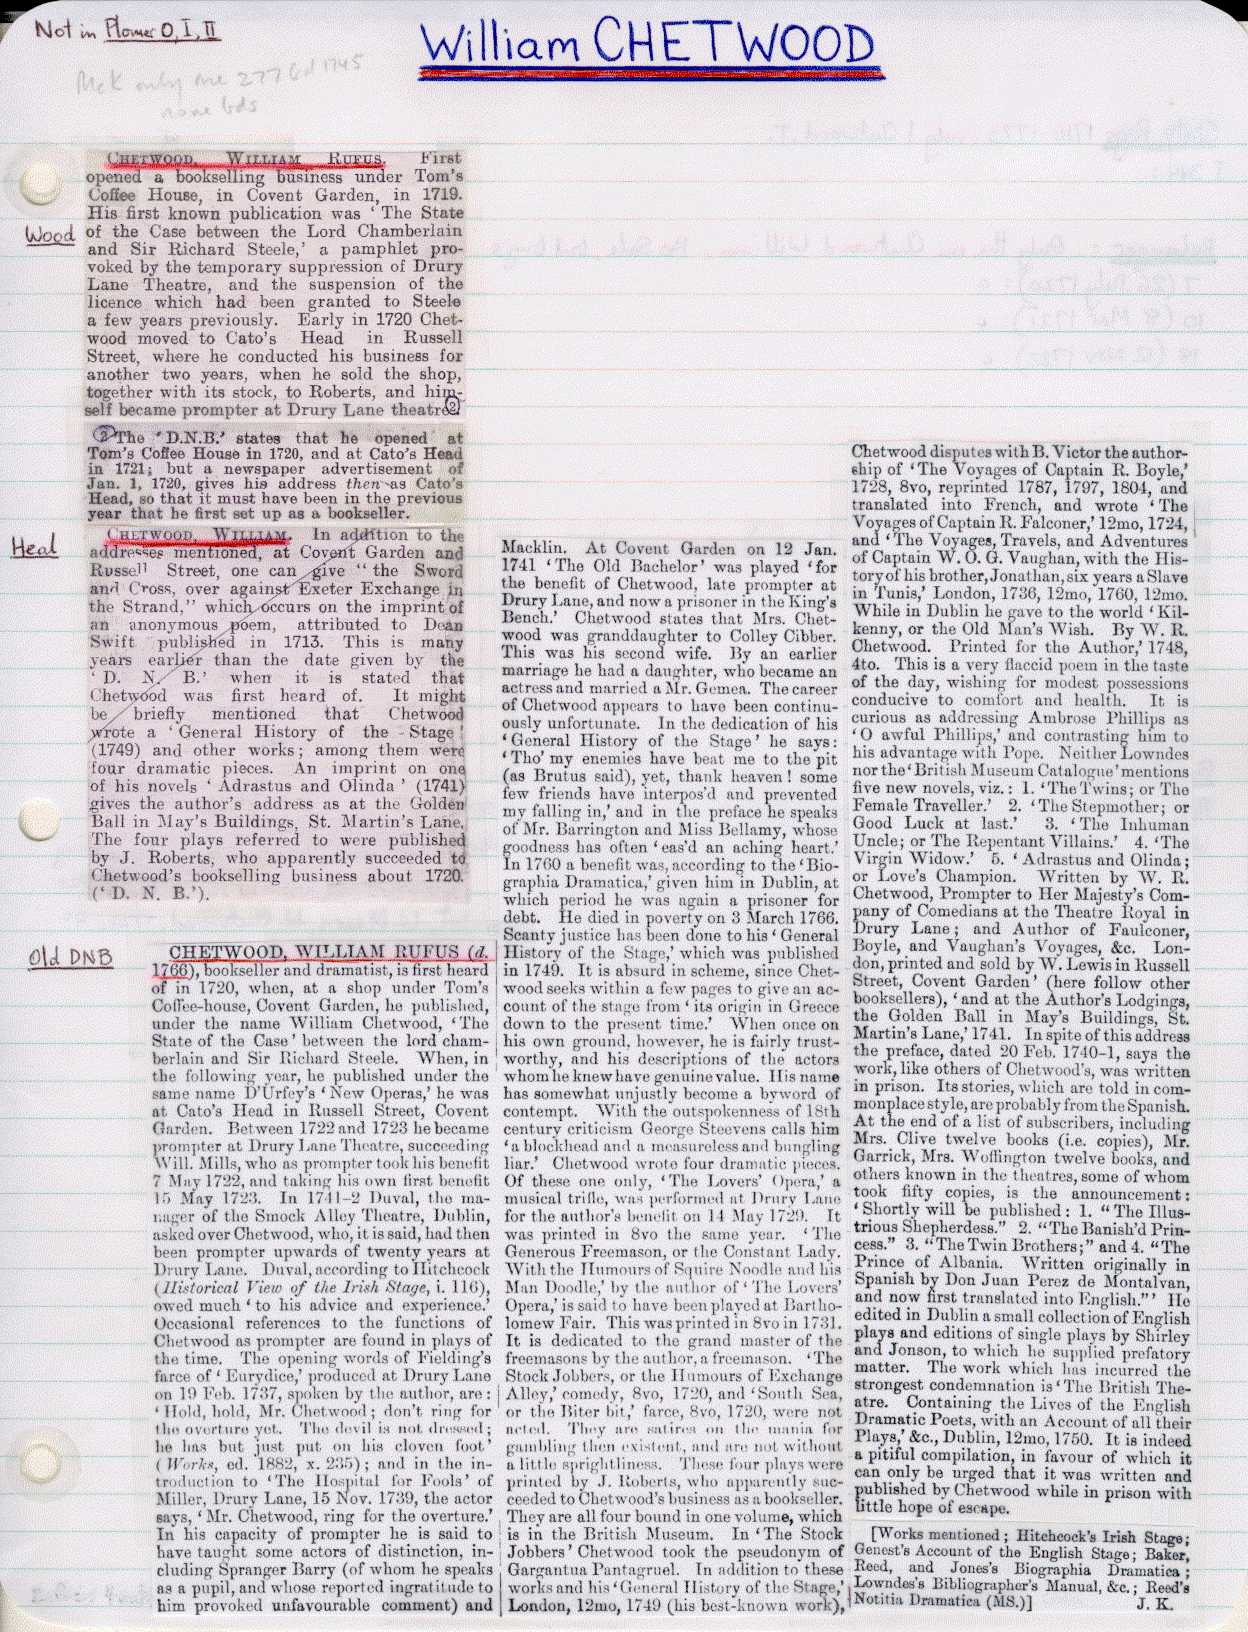 Not in Plomer O, I, II
William CHETWOOD
McK only one 277 Gd 1745
none bds
Wood
CHETWOOD, WILLIAM RUFUS. First
opened a bookselling business under Tom's
Coffee House, in Covent Garden, in 1719.
His first known publication was ‘ The State
of the Case between the Lord Chamberlain
and Sir Richard Steele,’ a pamphlet pro-
voked by the temporary suppression of Drury
Lane Theatre, and the suspension of the
licence which had been granted to Steele
a few years previously. Early in 1720 Chet-
wood moved to Cato's Head in Russell
Street, where he conducted his business for
another two years, when he sold the shop,
together with its stock, to Roberts, and him-
self became prompter at Drury Lane theatre. 2
2 The ‘ D.N.B.’ states that he opened at
Tom's Coffee House in 1720, and at Cato's Head
in 1721; but a newspaper advertisement of
Jan. 1, 1720, gives his address then as Cato's
Head, so that it must have been in the previous
year that he first set up as a bookseller.
Heal
CHETWOOD, WILLIAM. In addition to the
addresses mentioned, at Covent Garden and
Russell Street, one can give “ the Sword
and Cross, over against Exeter Exchange in
the Strand,” which occurs on the imprint of
an anonymous poem, attributed to Dean
Swift published in 1713. This is many
years earlier than the date given by the
‘ D. N. B.’ when it is stated that
Chetwood was first heard of. It might
be briefly mentioned that Chetwood
wrote a ‘ General History of the Stage ’
(1749) and other works; among them were
four dramatic pieces. An imprint on one
of his novels ‘ Adrastus and Olinda ’ (1741)
gives the author's address as at the Golden
Ball in May's Buildings, St. Martin's Lane.
The four plays referred to were published
by J. Roberts, who apparently succeeded to
Chetwood's bookselling business about 1720.
(‘ D. N. B.’).
Old DNB
CHETWOOD, WILLIAM RUFUS (d.
1766), bookseller and dramatist, is first heard
of in 1720, when, at a shop under Tom's
Coffee-house, Covent Garden, he published,
under the name William Chetwood, ‘The
State of the Case’ between the lord cham-
berlain and Sir Richard Steele. When, in
the following year, he published under the
same name D'Urfey's ‘ New Operas,’ he was
at Cato's Head in Russell Street, Covent
Garden. Between 1722 and 1723 he became
prompter at Drury Lane Theatre, succeeding
Will. Mills, who as prompter took his benefit
7 May 1722, and taking his own first benefit
15 May 1723. In 1741–2 Duval, the ma-
nager of the Smock Alley Theatre, Dublin,
asked over Chetwood, who, it is said, had then
been prompter upwards of twenty years at
Drury Lane. Duval, according to Hitchcock
(Historical View of the Irish Stage, i. 116),
owed much ‘ to his advice and experience.’
Occasional references to the functions of
Chetwood as prompter are found in plays of
the time. The opening words of Fielding's
farce of ‘ Eurydice,’ produced at Drury Lane
on 19 Feb. 1737, spoken by the author, are :
‘ Hold, hold, Mr. Chetwood ; don't ring for
the overture yet. The devil is not dressed ;
he has but just put on his cloven foot’
(Works, ed. 1882, x. 235) ; and in the in-
troduction to ‘ The Hospital for Fools’ of
Miller, Drury Lane, 15 Nov. 1739, the actor
says, ‘ Mr. Chetwood, ring for the overture.’
In his capacity of prompter he is said to
have taught some actors of distinction, in-
cluding Spranger Barry (of whom he speaks
as a pupil, and whose reported ingratitude to
him provoked unfavourable comment) and
Macklin. At Covent Garden on 12 Jan.
1741 ‘The Old Bachelor’ was played ‘for
the benefit of Chetwood, late prompter at
Drury Lane, and now a prisoner in the King's
Bench.’ Chetwood states that Mrs. Chet-
wood was granddaughter to Colley Cibber.
This was his second wife. By an earlier
marriage he had a daughter, who became an
actress and married a Mr. Gemea. The career
of Chetwood appears to have been continu-
ously unfortunate. In the dedication of his
‘General History of the Stage’ he says:
‘Tho' my enemies have beat me to the pit
(as Brutus said), yet, thank heaven ! some
few friends have interpos'd and prevented
my falling in,’ and in the preface he speaks
of Mr. Barrington and Miss Bellamy, whose
goodness has often ‘ eas'd an aching heart.’
In 1760 a benefit was, according to the ‘Bio-
graphia Dramatica,’ given him in Dublin, at
which period he was again a prisoner for
debt. He died in poverty on 3 March 1766.
Scanty justice has been done to his ‘ General
History of the Stage,’ which was published
in 1749. It is absurd in scheme, since Chet-
wood seeks within a few pages to give an ac-
count of the stage from ‘ its origin in Greece
down to the present time.’ When once on
his own ground, however, he is fairly trust-
worthy, and his descriptions of the actors
whom he knew have genuine value. His name
has somewhat unjustly become a byword of
contempt. With the outspokenness of 18th
century criticism George Steevens calls him
‘a blockhead and a measureless and bungling
liar.’ Chetwood wrote four dramatic pieces.
Of these one only, ‘The Lovers' Opera,’ a
musical trifle, was performed at Drury Lane
for the author's benefit on 14 May 1729. It
was printed in 8vo the same year. ‘The
Generous Freemason, or the Constant Lady.
With the Humours of Squire Noodle and his
Man Doodle,’ by the author of ‘ The Lovers'
Opera,’ is said to have been played at Bartho-
lomew Fair. This was printed in 8vo in 1731.
It is dedicated to the grand master of the
freemasons by the author, a freemason. ‘The
Stock Jobbers, or the Humours of Exchange
Alley,’ comedy, 8vo, 1720, and ‘South Sea,
or the Biter bit,’ farce, 8vo, 1720, were not
acted. They are satires on the mania for
gambling then existent, and are not without
a little sprightliness. These four plays were
printed by J. Roberts, who apparently suc-
ceeded to Chetwood's business as a bookseller.
They are all four bound in one volume, which
is in the British Museum. In ‘The Stock
Jobbers’ Chetwood took the pseudonym of
Gargantua Pantagruel. In addition to these
works and his ‘General History of the Stage,’
London, 12mo, 1749 (his best-known work),
Chetwood disputes with B. Victor the author-
ship of ‘The Voyages of Captain R. Boyle,’
1728, 8vo, reprinted 1787, 1797, 1804, and
translated into French, and wrote ‘The
Voyages of Captain R. Falconer,’ 12mo, 1724,
and ‘The Voyages, Travels, and Adventures
of Captain W. O. G. Vaughan, with the His-
tory of his brother, Jonathan, six years a Slave
in Tunis,’ London, 1736, 12mo, 1760, 12mo.
While in Dublin he gave to the world ‘Kil-
kenny, or the Old Man's Wish. By W. R.
Chetwood. Printed for the Author,’ 1748,
4to. This is a very flaccid poem in the taste
of the day, wishing for modest possessions
conducive to comfort and health. It is
curious as addressing Ambrose Phillips as
‘O awful Phillips,’ and contrasting him to
his advantage with Pope. Neither Lowndes
nor the ‘British Museum Catalogue’ mentions
five new novels, viz.: 1. ‘The Twins; or The
Female Traveller.’ 2. ‘The Stepmother; or
Good Luck at last.’ 3. ‘The Inhuman
Uncle; or The Repentant Villains.’ 4. ‘The
Virgin Widow.’ 5. ‘ Adrastus and Olinda ;
or Love's Champion. Written by W. R.
Chetwood, Prompter to Her Majesty's Com-
pany of Comedians at the Theatre Royal in
Drury Lane; and Author of Faulconer,
Boyle, and Vaughan's Voyages, &c. Lon-
don, printed and sold by W. Lewis in Russell
Street, Covent Garden’ (here follow other
booksellers), ‘and at the Author's Lodgings,
the Golden Ball in May's Buildings, St.
Martin's Lane,’ 1741. In spite of this address
the preface, dated 20 Feb. 1740–1, says the
work, like others of Chetwood's, was written
in prison. Its stories, which are told in com-
monplace style, are probably from the Spanish.
At the end of a list of subscribers, including
Mrs. Clive twelve books (i.e. copies), Mr.
Garrick, Mrs. Woffington twelve books, and
others known in the theatres, some of whom
took fifty copies, is the announcement:
‘Shortly will be published : 1. “The Illus-
trious Shepherdess.” 2. “The Banish'd Prin-
cess.” 3. “The Twin Brothers;” and 4. “The
Prince of Albania. Written originally in
Spanish by Don Juan Perez de Montalvan,
and now first translated into English.”’ He
edited in Dublin a small collection of English
plays and editions of single plays by Shirley
and Jonson, to which he supplied prefatory
matter. The work which has incurred the
strongest condemnation is ‘The British The-
atre. Containing the Lives of the English
Dramatic Poets, with an Account of all their
Plays,’ &c., Dublin, 12mo, 1750. It is indeed
a pitiful compilation, in favour of which it
can only be urged that it was written and
published by Chetwood while in prison with
little hope of escape.
[Works mentioned ; Hitchcock's Irish Stage;
Genest's Account of the English Stage; Baker,
Reed, and Jones's Biographia Dramatica ;
Lowndes's Bibliographer's Manual, &c. ; Reed's
Notitia Dramatica (MS.)] J. K.